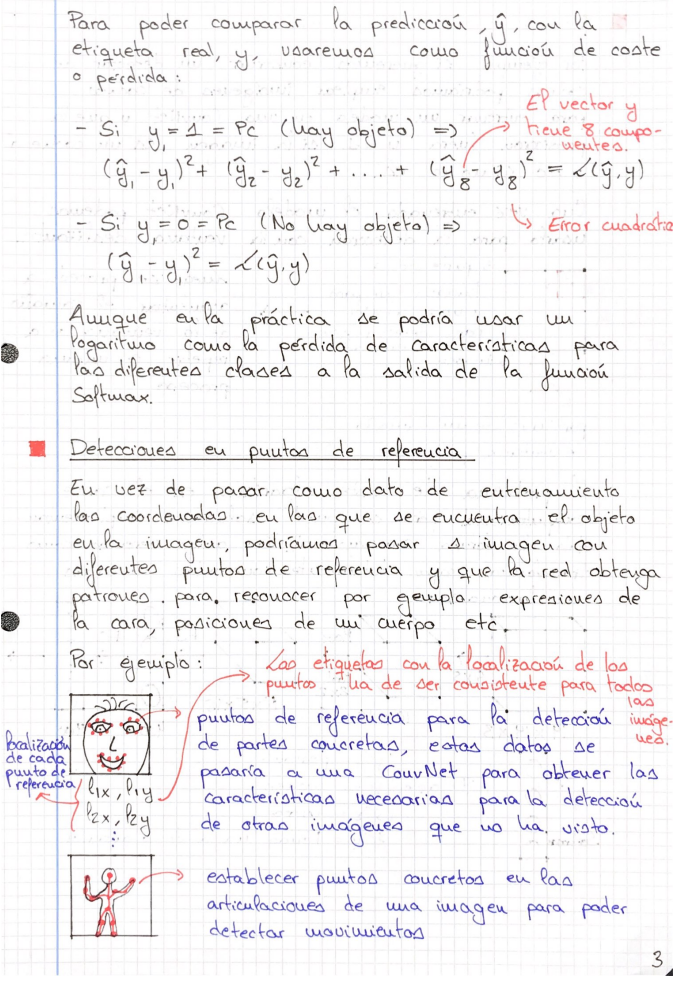 Para poder comparar la predicción, ŷ, con la
etiqueta real, y, usaremos como función de coste
o pérdida:
El vector y
tiene 8 compo-
nentes.
- Si y₁ = 1 = Pc (hay objeto) =>
(ŷ₁ - y₁)² + (ŷ₂ - y₂)² + .... + (ŷ₈ - y₈)² = ℒ(ŷ,y)
- Si y₁ = 0 = Pc (No hay objeto) =>
Error cuadrático
(ŷ₁ - y₁)² = ℒ(ŷ,y)
Aunque en la práctica se podría usar un
logaritmo como la pérdida de características para
las diferentes clases a la salida de la función
Softmax.
Detecciones en puntos de referencia
En vez de pasar como dato de entrenamiento
las coordenadas en las que se encuentra el objeto
en la imagen, podríamos pasar s imagen con
diferentes puntos de referencia y que la red obtenga
patrones para reconocer por ejemplo expresiones de
la cara, posiciones de un cuerpo etc.
Por ejemplo:
Las etiquetas con la localización de los
puntos ha de ser consistente para todos
las
imáge-
nes.
puntos de referencia para la detección
de partes concretas, estos datos se
pasaría a una ConvNet para obtener las
características necesarias para la detección
de otras imágenes que no ha visto.
localización
de cada
punto de
referencia
l1x, l1y
l2x, l2y
⋮
establecer puntos concretos en las
articulaciones de una imagen para poder
detectar movimientos
3